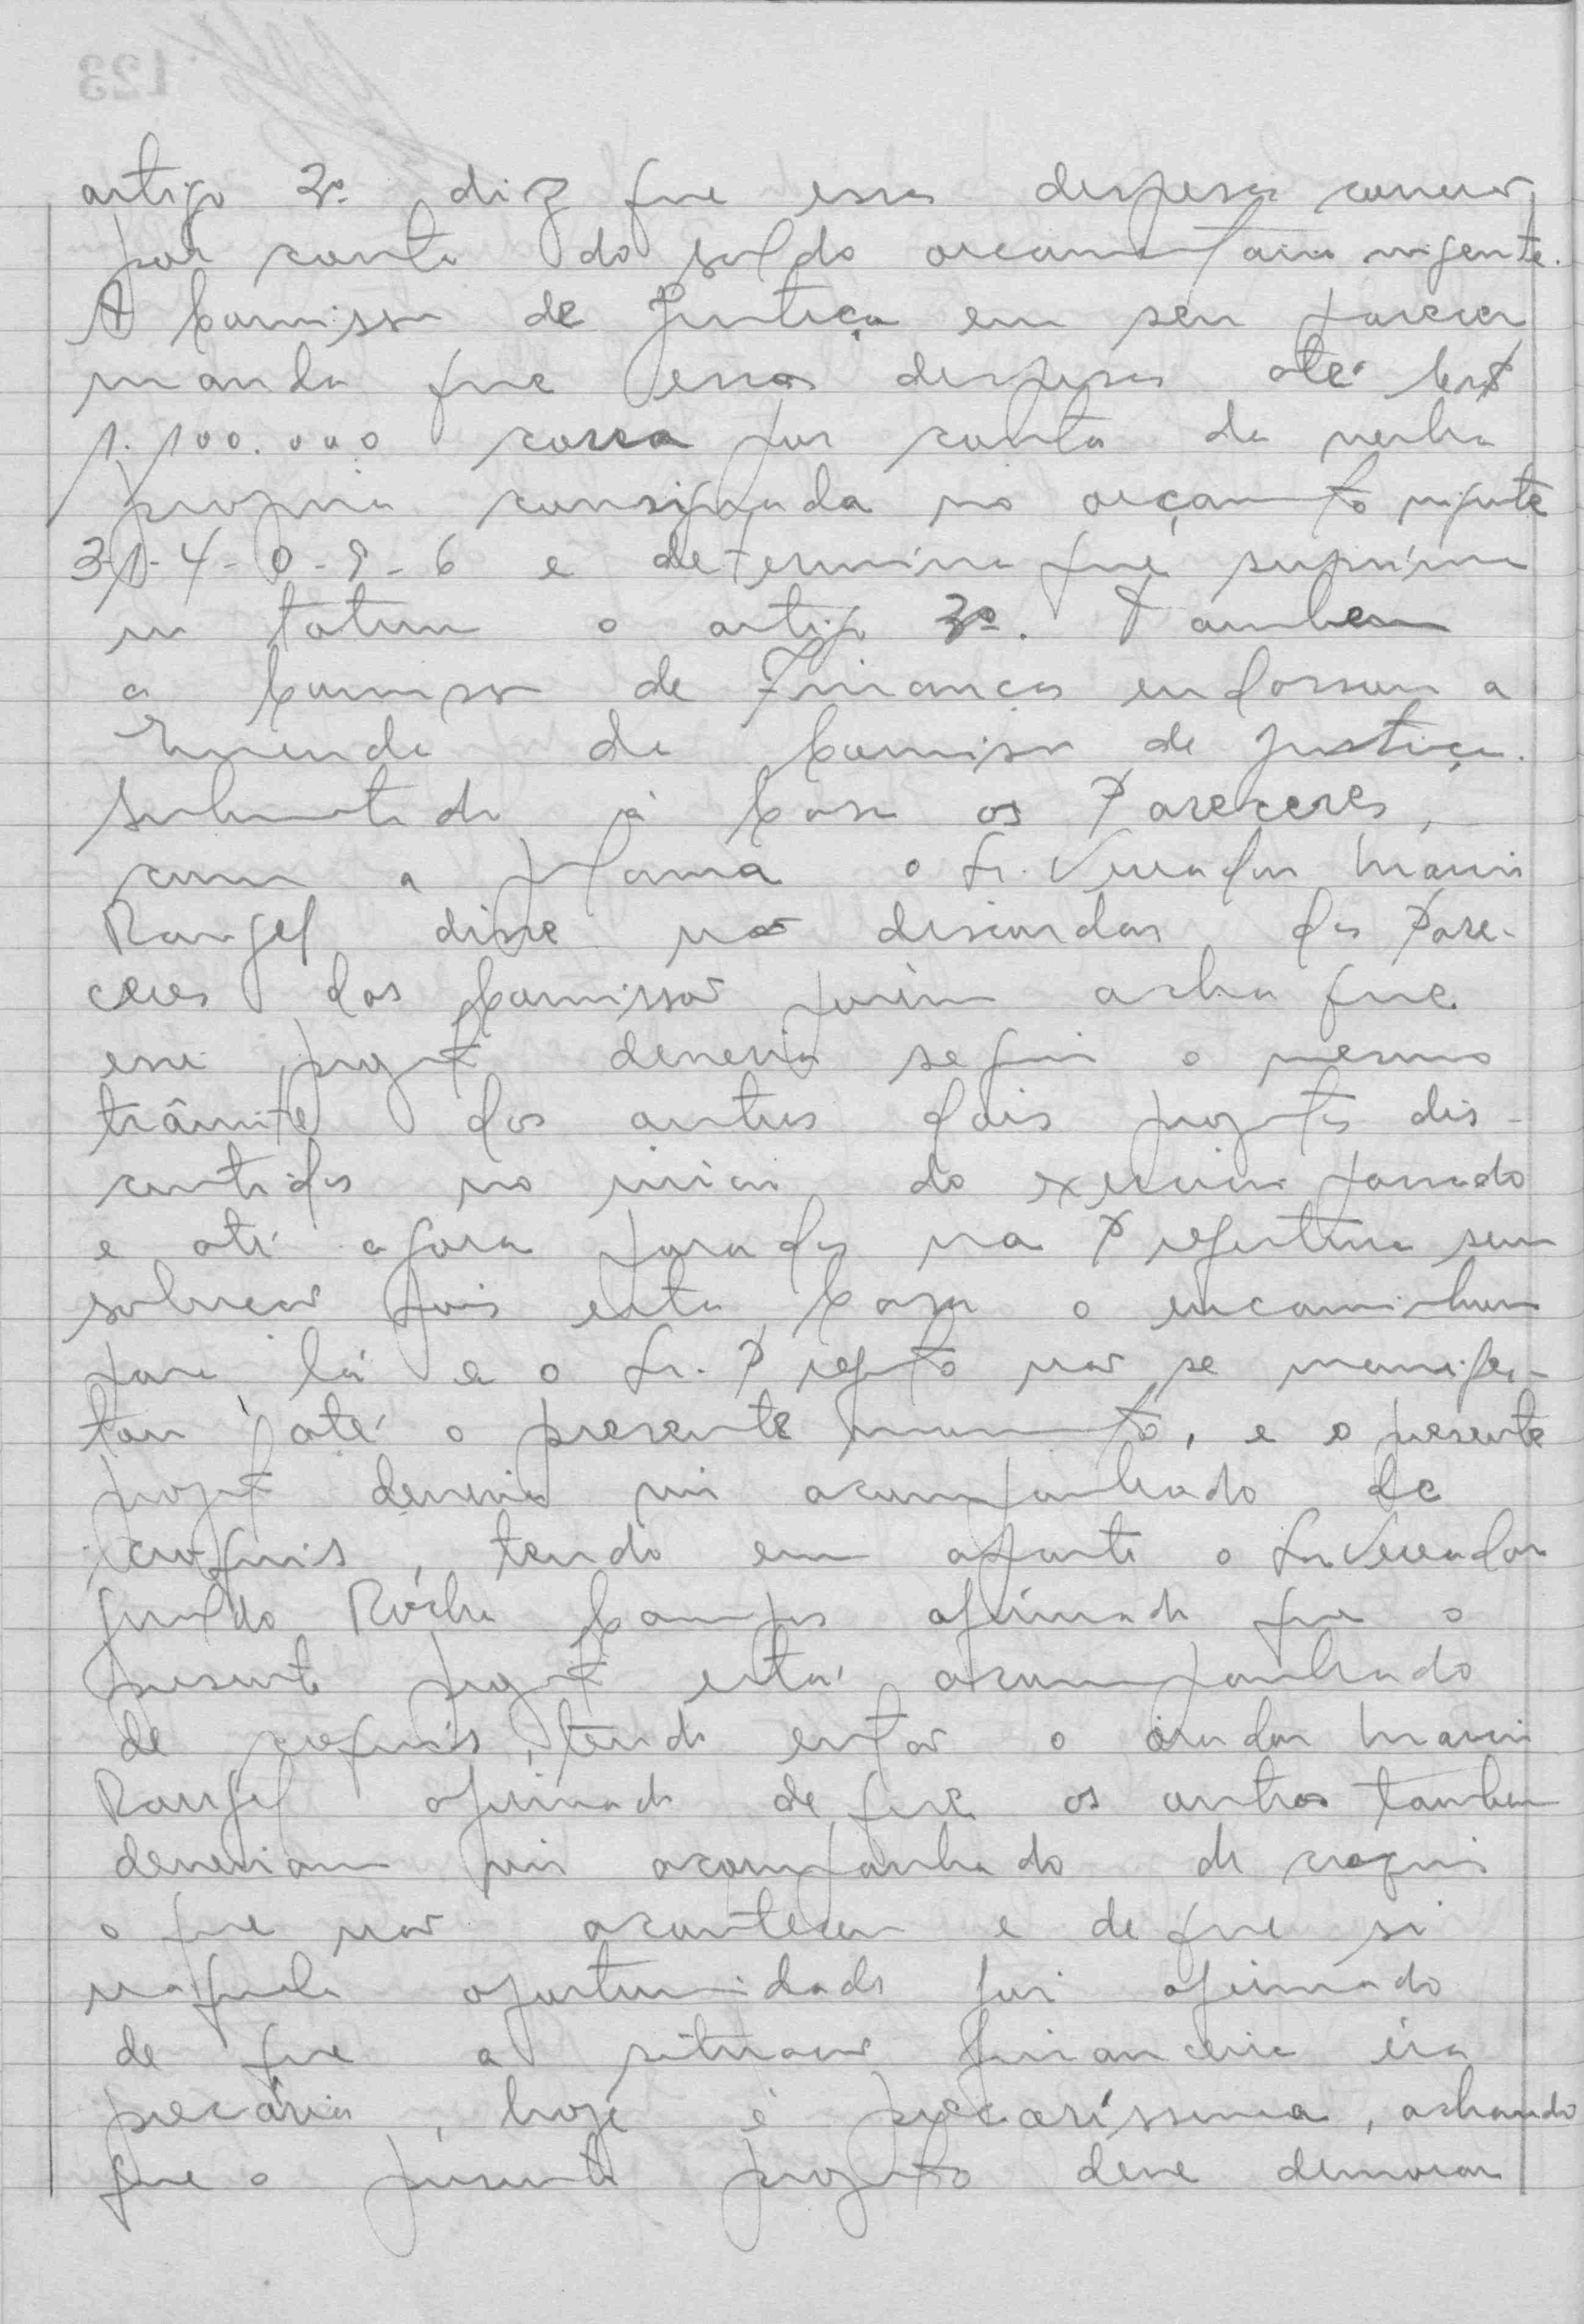 artigo 3º diz que essa despesa correr
por conta do saldo orcamentario vigente.
A Comissão de Justiça em seu parecer
manda que essas despesas até Cr$
1.100.000 corra por conta da verba
propria consignada no orçamento vigente
3-1-4-0-9-6 e determina que suprima
in totum o artigo 3º. Tambem
a Comissão de Finanças endossam a
Emenda da Comissão de Justiça.
Submetido à Casa os Pareceres,
com a palavra o Sr. Vereador Mario
Rangel disse não discordar dos Pare-
ceres das Comissão porém acha que
esse projeto deveria seguir o mesmo
trâmite dos outros dois projetos dis-
cutidos no inicio do exercicio passado
e até agora parados na Prefeitura sem
solução pois esta Casa o encaminhou
para lá e o Sr. Prefeito não se manifes-
tou até o presente momento, e o presente
projeto deveria vir acompanhado de
croquis, tendo em aparte o Sr. Vereador
Geraldo Rócha Campos afirmado que o
presente projeto está acompanhado
de croquis, tendo então o orador Mario
Rangel afirmado de que os outros tambem
deveriam vir acompanhado de croquis
o que não aconteceu e de que si
naquela oportunidade foi afirmado
de que a situação financeira éra
precária, hoje é precaríssima, achando
que o presente projeto deve demorar